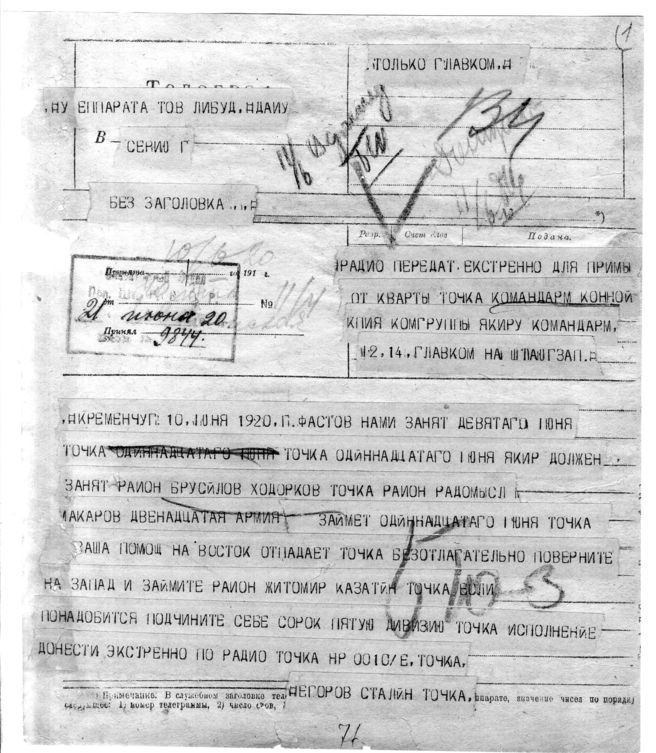 (1
ТОЛЬКО ГЛАВКОМ,
У ЕППАРАТА ТОВ ЛИБУД, ДАЙУ
В — СЕРИЮ Г
БЕЗ ЗАГОЛОВКА...
Разр. Счет слов Подана.
*)
РАДИО ПЕРЕДАТ.ЕКСТРЕННО ДЛЯ ПРИМЫ
ОТ КВАРТЫ ТОЧКА КОМАНДАРМ КОННОЙ
КПИЯ КОМГРУППЫ ЯКИРУ КОМАНДАРМ,
12,14, ГЛАВКОМ НАШТАЮГЗАП.
191 г.
№
21 июня 20
Принял 9844.
КРЕМЕНЧУГ 10,ИЮНЯ 1920,Г. ФАСТОВ НАМИ ЗАНЯТ ДЕВЯТАГО IЮНЯ
ТОЧКА ОДИННАДЦАТАГО IЮНЯ ТОЧКА ОДИННАДЦАТАГО IЮНЯ ЯКИР ДОЛЖЕН
ЗАНЯТ РАЙОН БРУСИЛОВ ХОДОРКОВ ТОЧКА РАЙОН РАДОМЫСЛ
МАКАРОВ ДВЕНАДЦАТАЯ АРМИЯ ЗАЙМЕТ ОДИННАДЦАТАГО IЮНЯ ТОЧКА
ВАША ПОМОЩ НА ВОСТОК ОТПАДАЕТ ТОЧКА БЕЗОТЛАГАТЕЛЬНО ПОВЕРНИТЕ
НА ЗАПАД И ЗАЙМИТЕ РАЙОН ЖИТОМИР КАЗАТИН ТОЧКА ЕСЛИ
ПОНАДОБИТСЯ ПОДЧИНИТЕ СЕБЕ СОРОК ПЯТУЮ ДИВИЗИЮ ТОЧКА ИСПОЛНЕНИЕ
ДОНЕСТИ ЭКСТРЕННО ПО РАДИО ТОЧКА НР 0010/Е,ТОЧКА,
ЕГОРОВ СТАЛИН ТОЧКА,
Примечание. В служебном заголовке теле
аппарате, значение чисел по порядку
следующее: 1) номер телеграммы, 2) число слов,
71